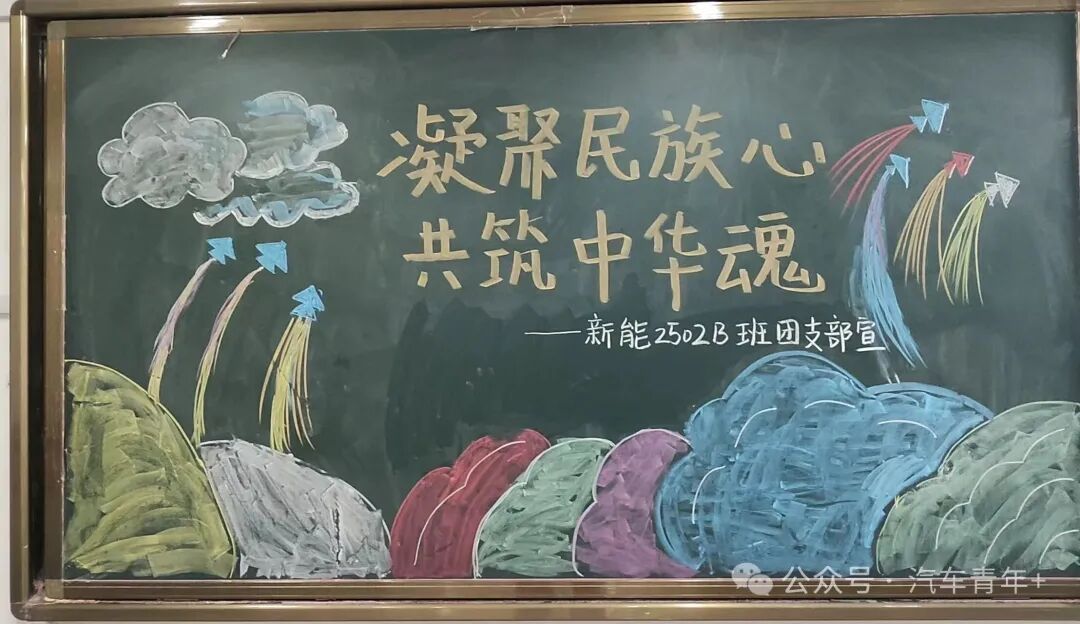 凝聚民族心
共筑中华魂
——新能2502B班团支部宣
公众号·汽车青年+